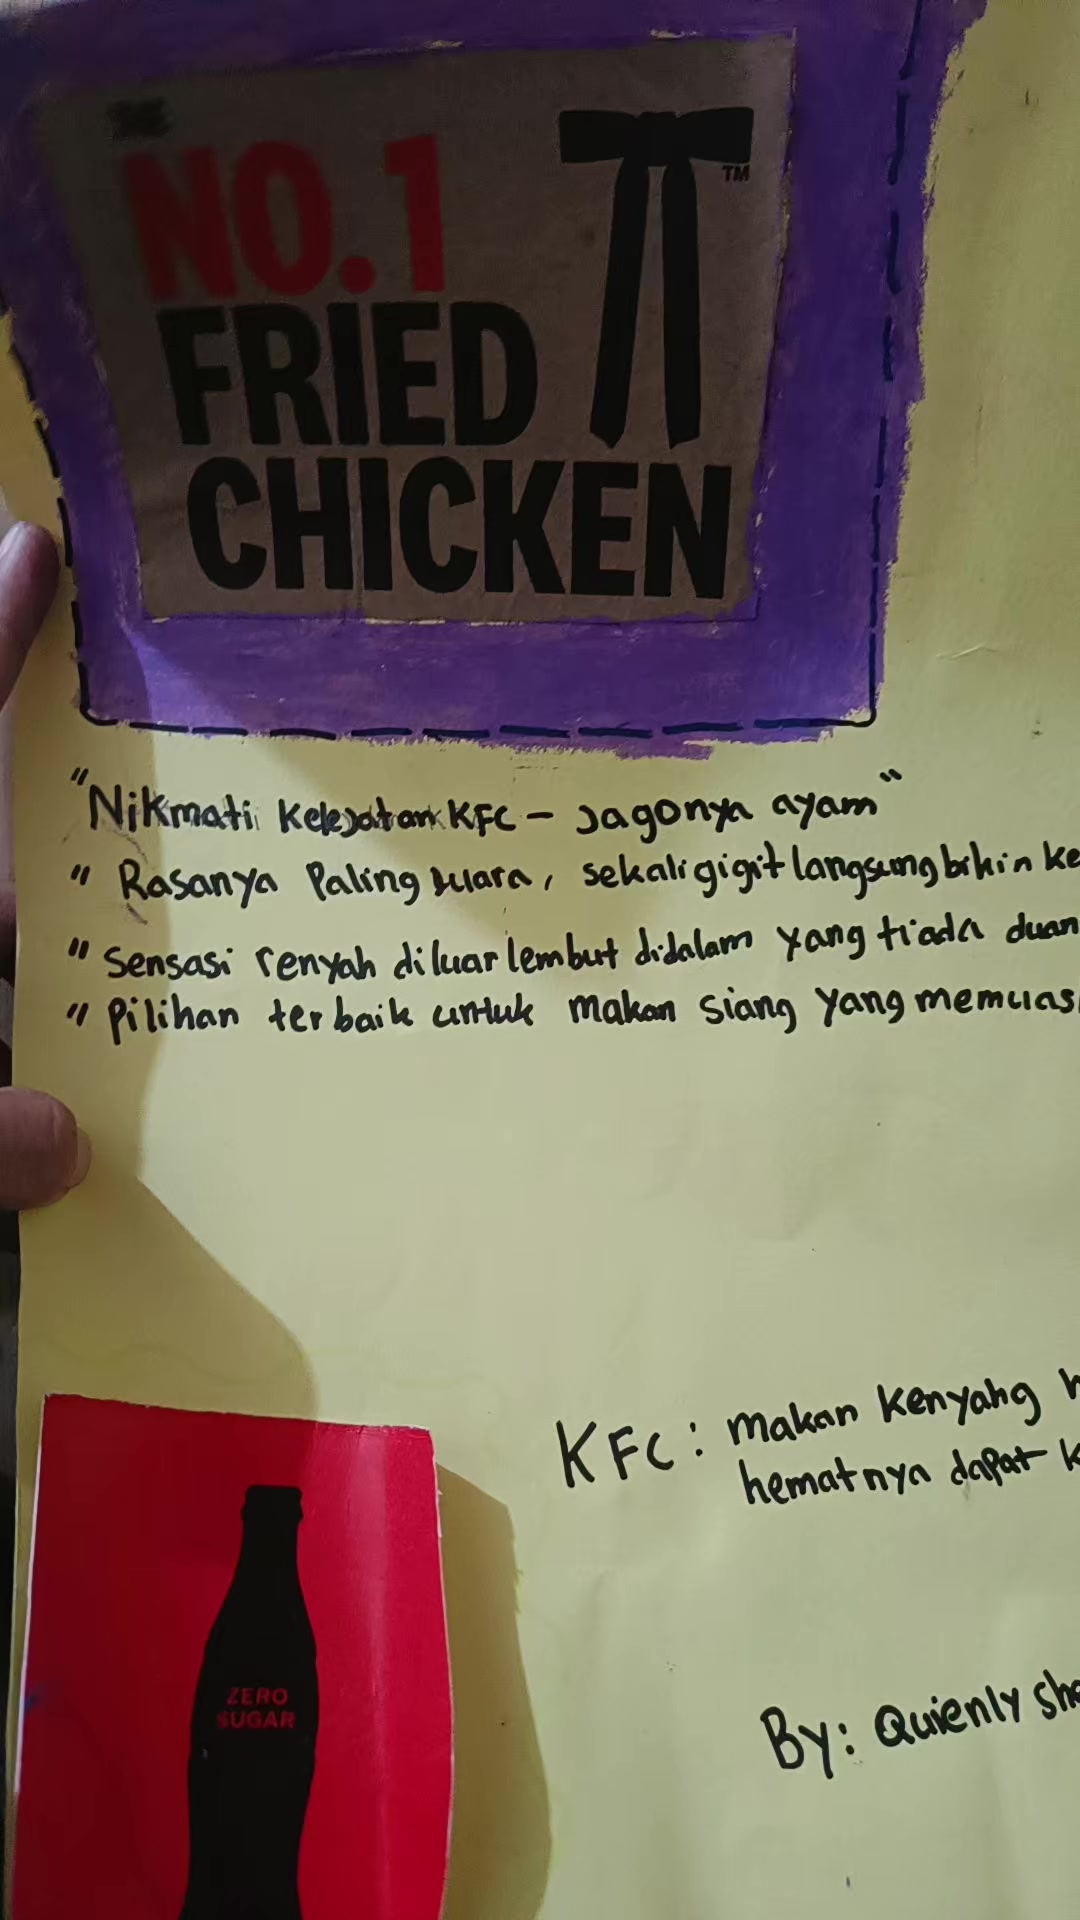 NO.1
FRIED
CHICKEN
TM
"Nikmati Kelejatan KFC - Jagonya ayam"
" Rasanya Paling juara, sekali gigit langsung bikin ke
" Sensasi renyah diluar lembut didalam yang tiada duan
" Pilihan terbaik untuk makan siang yang memuas
KFC: makan kenyang h
hematnya dapat k
ZERO
SUGAR
By: Quienly sha